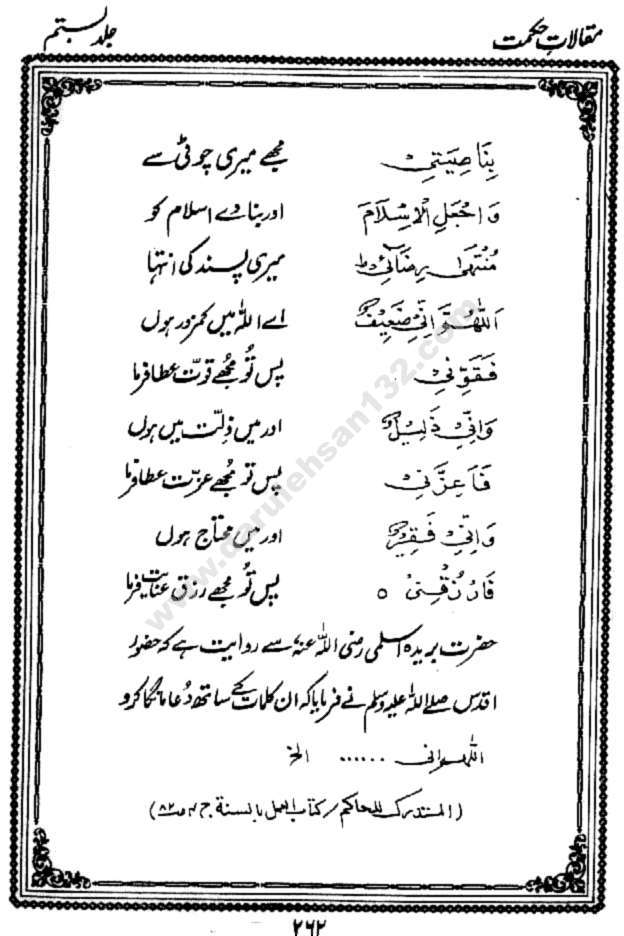 مقالاتِ حکمت جلد بستم
بِنَاصِيَتِیْ مجھے میری چوٹی سے
وَاجْعَلِ الْاِسْلَامَ اور بنا دے اسلام کو
مُنْتَهٰی رِضَآئِیْ ط میری پسند کی انتہا
اَللّٰهُمَّ اِنِّیْ ضَعِيْفٌ اے اللہ میں کمزور ہوں
فَقَوِّنِیْ پس تُو مجھے قوّت عطا فرما
وَاِنِّیْ ذَلِيْلٌ اور میں ذِلّت میں ہوں
فَاَعِزَّنِیْ پس تو مجھے عزّت عطا فرما
وَاِنِّیْ فَقِيْرٌ اور میں محتاج ہوں
فَارْزُقْنِیْ ٥ پس تُو مجھے رزق عنایت فرما
حضرت بریدہ اسلمی رضی اللہ عنہٗ سے روایت ہے کہ حضور
اقدس صلے اللہ علیہ وسلم نے فرمایا کہ ان کلمات کے ساتھ دُعا مانگا کرو
اللهم انی ...... الخ
(المستدرک للحاکم / کتاب العمل بالسنة ج
۲۶۲
www.darulehsan132.com